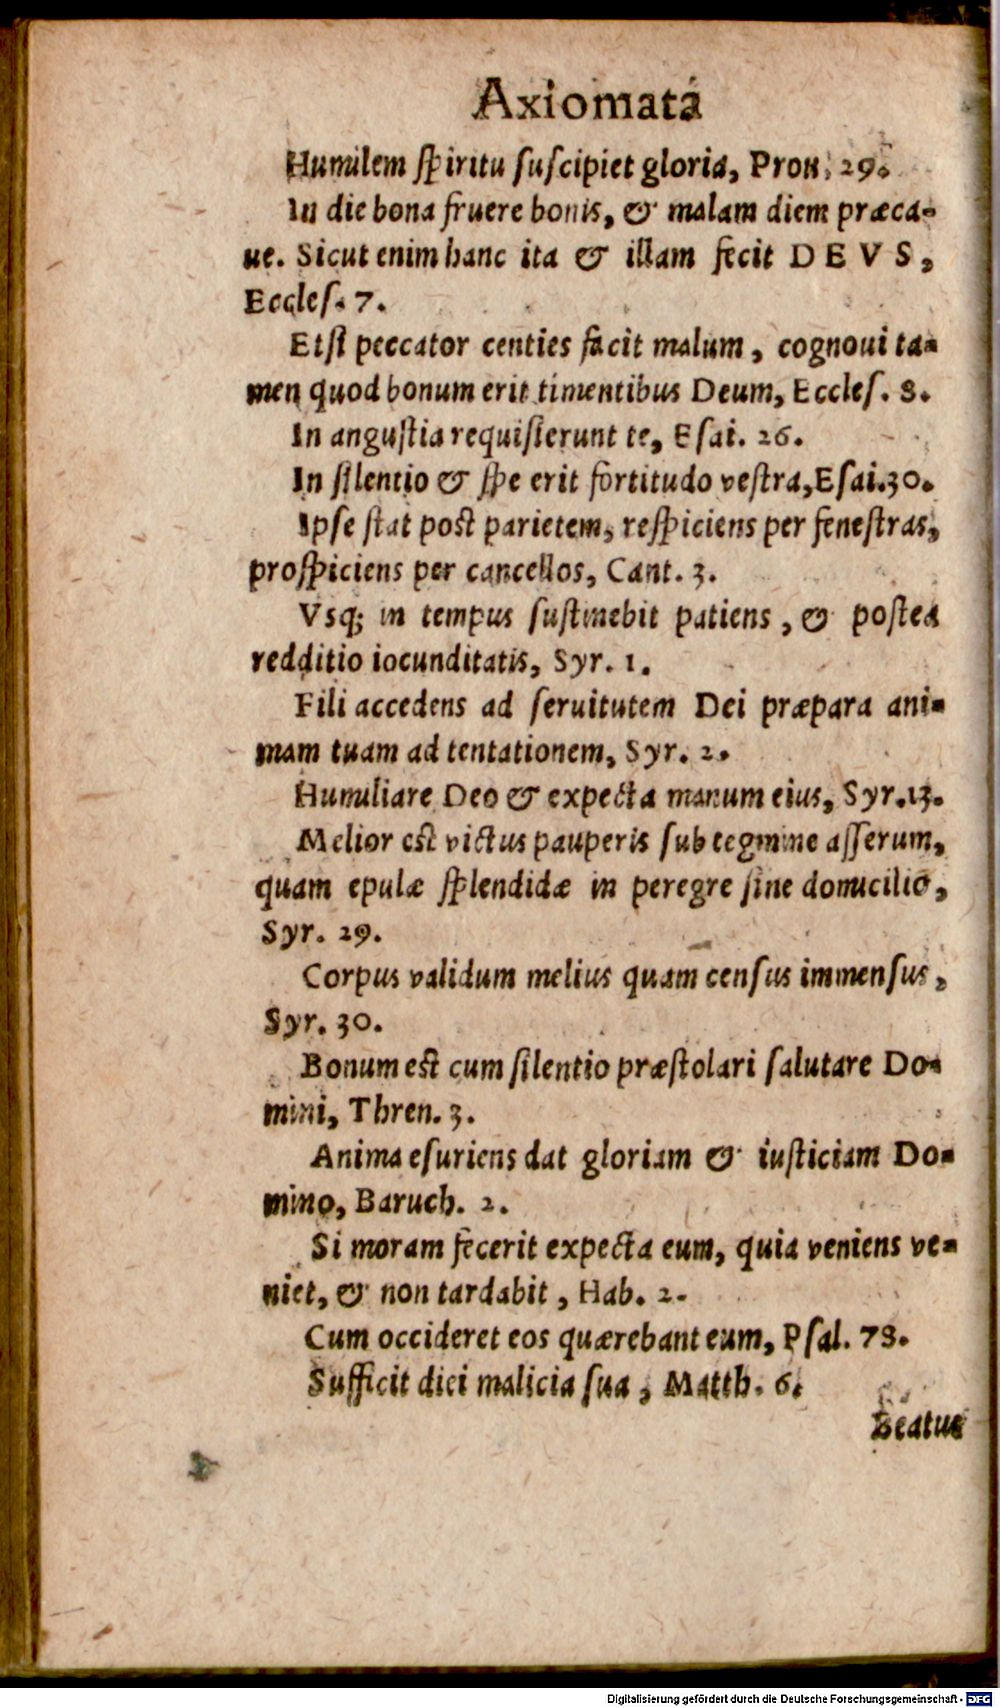 Axiomata
Humilem ſpiritu ſuſcipiet gloria, Prou. 29.
In die bona fruere bonis, & malam diem præca-
ue. Sicut enim hanc ita & illam fecit DEVS,
Eccleſ. 7.
Etſi peccator centies facit malum, cognoui ta-
men quod bonum erit timentibus Deum, Eccleſ. 8.
In anguſtia requiſierunt te, Eſai. 26.
In ſilentio & ſpe erit fortitudo veſtra, Eſai. 30.
Ipſe ſtat poſt parietem, reſpiciens per feneſtras,
proſpiciens per cancellos, Cant. 3.
Vsq; in tempus ſuſtinebit patiens, & poſtea
redditio iocunditatis, Syr. 1.
Fili accedens ad ſeruitutem Dei præpara ani-
mam tuam ad tentationem, Syr. 2.
Humiliare Deo & expecta manum eius, Syr. 13.
Melior eſt victus pauperis ſub tegmine aſſerum,
quam epulæ ſplendidæ in peregre ſine domicilio,
Syr. 29.
Corpus validum melius quam cenſus immenſus,
Syr. 30.
Bonum eſt cum ſilentio præſtolari ſalutare Do-
mini, Thren. 3.
Anima eſuriens dat gloriam & iuſticiam Do-
mino, Baruch. 2.
Si moram fecerit expecta eum, quia veniens ve-
niet, & non tardabit, Hab. 2.
Cum occideret eos quærebant eum, Pſal. 78.
Sufficit diei malicia ſua, Matth. 6.
Beatus
Digitalisierung gefördert durch die Deutsche Forschungsgemeinschaft - DFG